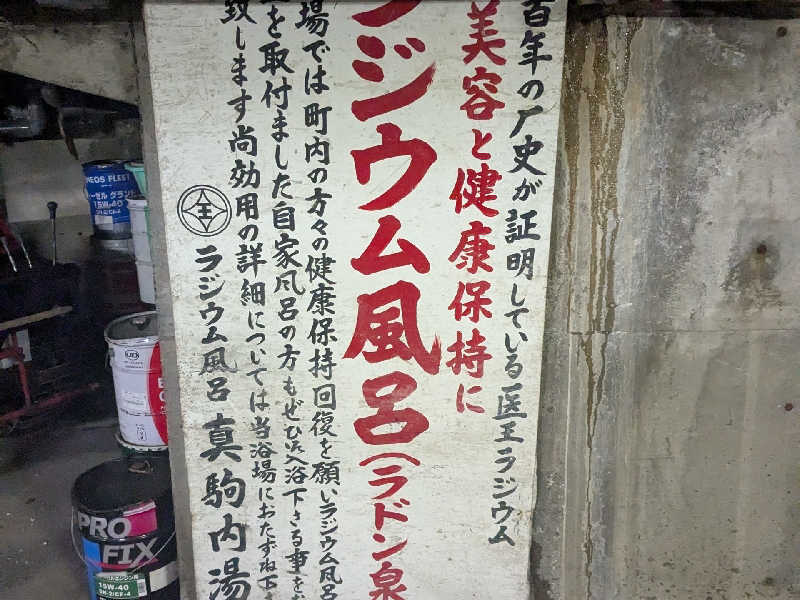 百年の歴史が証明している医王ラジウム
美容と健康保持に
ラジウム風呂(ラドン泉
場では町内の方々の健康保持回復を願いラジウム風呂
を取付ました自家風呂の方もぜひ入浴下さる事を
致します尚効用の詳細については当浴場におたずね下
ラジウム風呂 真駒内湯
王
ENEOS FLEET
ーゼル グランド
15W-40
PRO
FIX
15W-40